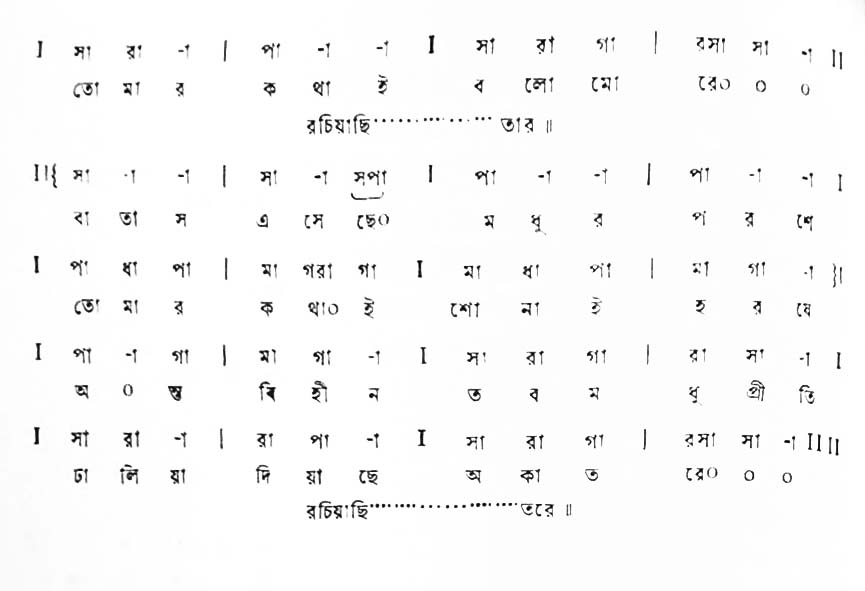 I সা রা -া | পা -া -া I সা রা গা | রসা সা -া II
তো মা র ক থা ই ব লো মো রে০ ০ ০
রচিয়াছি..................তার ॥
II{ সা -া -া | সা -া সপা I পা -া -া | পা -া -া I
বা তা স এ সে ছে০ ম ধু র প র শে
I পা ধা পা | মা গরা গা I মা ধা পা | মা গা -া }I
তো মা র ক থা০ ই শো না ই হ র ষে
I পা -া গা | মা গা -া I সা রা গা | রা সা -া I
অ ০ ন্ত বি হী ন ত ব ম ধু প্রী তি
I সা রা -া | রা পা -া I সা রা গা | রসা সা -া II II
ঢা লি য়া দি য়া ছে অ কা ত রে০ ০ ০
রচিয়াছি......................তরে ॥